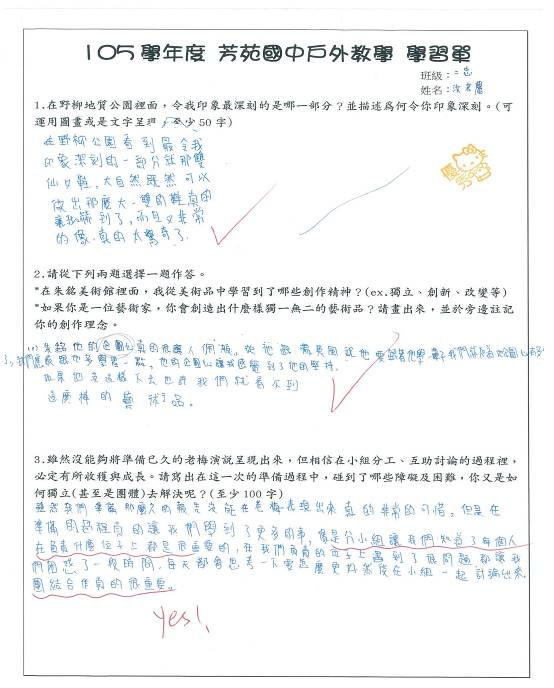 105學年度 芳苑國中戶外教學 學習單
班級：二忠
姓名：
1.在野柳地質公園裡面，令我印象最深刻的是哪一部分？並描述為何令你印象深刻。(可
運用圖畫或是文字呈現，至少50字)
在野柳公園看到最令我
印象深刻的一部分就那雙
仙女鞋，大自然既然可以
做出那麼大一雙的鞋真的
讓我嚇到了，而且又非常
的像，真的太驚奇了。
2.請從下列兩題選擇一題作答。
*在朱銘美術館裡面，我從美術品中學習到了哪些創作精神？(ex.獨立、創新、改變等)
*如果你是一位藝術家，你會創造出什麼樣獨一無二的藝術品？請畫出來，並於旁邊註記
你的創作理念。
朱銘他的企圖心真的很讓人佩服，從他
如果他
這樣下去也許我們就看不到
這麼棒的藝術品。
3.雖然沒能夠將準備已久的老梅演說呈現出來，但相信在小組分工、互助討論的過程裡，
必定有所收獲與成長。請寫出在這一次的準備過程中，碰到了哪些障礙及困難，你又是如
何獨立(甚至是團體)去解決呢？(至少100字)
雖然我們準備那麼久的報告沒能在老梅表現出來真的非常的可惜，但是在
準備的過程真的讓我們學到了更多的事，像是分小組讓我們知道了每個人
在負責什麼位子上都是很重要的，在我們負責的位子上遇到了很問題都讓我
們困惑了一段時間，每天都會思考一下要怎麼更好然後在小組一起討論出來，
團結合作真的很重要。
yes!